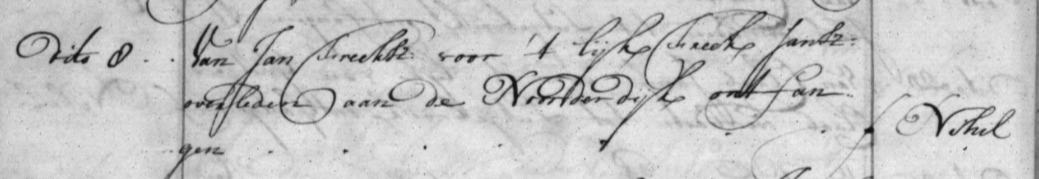 Dito 8 . . Van Jan Creeksz: voor 't lijk Creek Jansz:
overleden aan de Noorderdijk ontfan
gen . . . . . . f Nihil